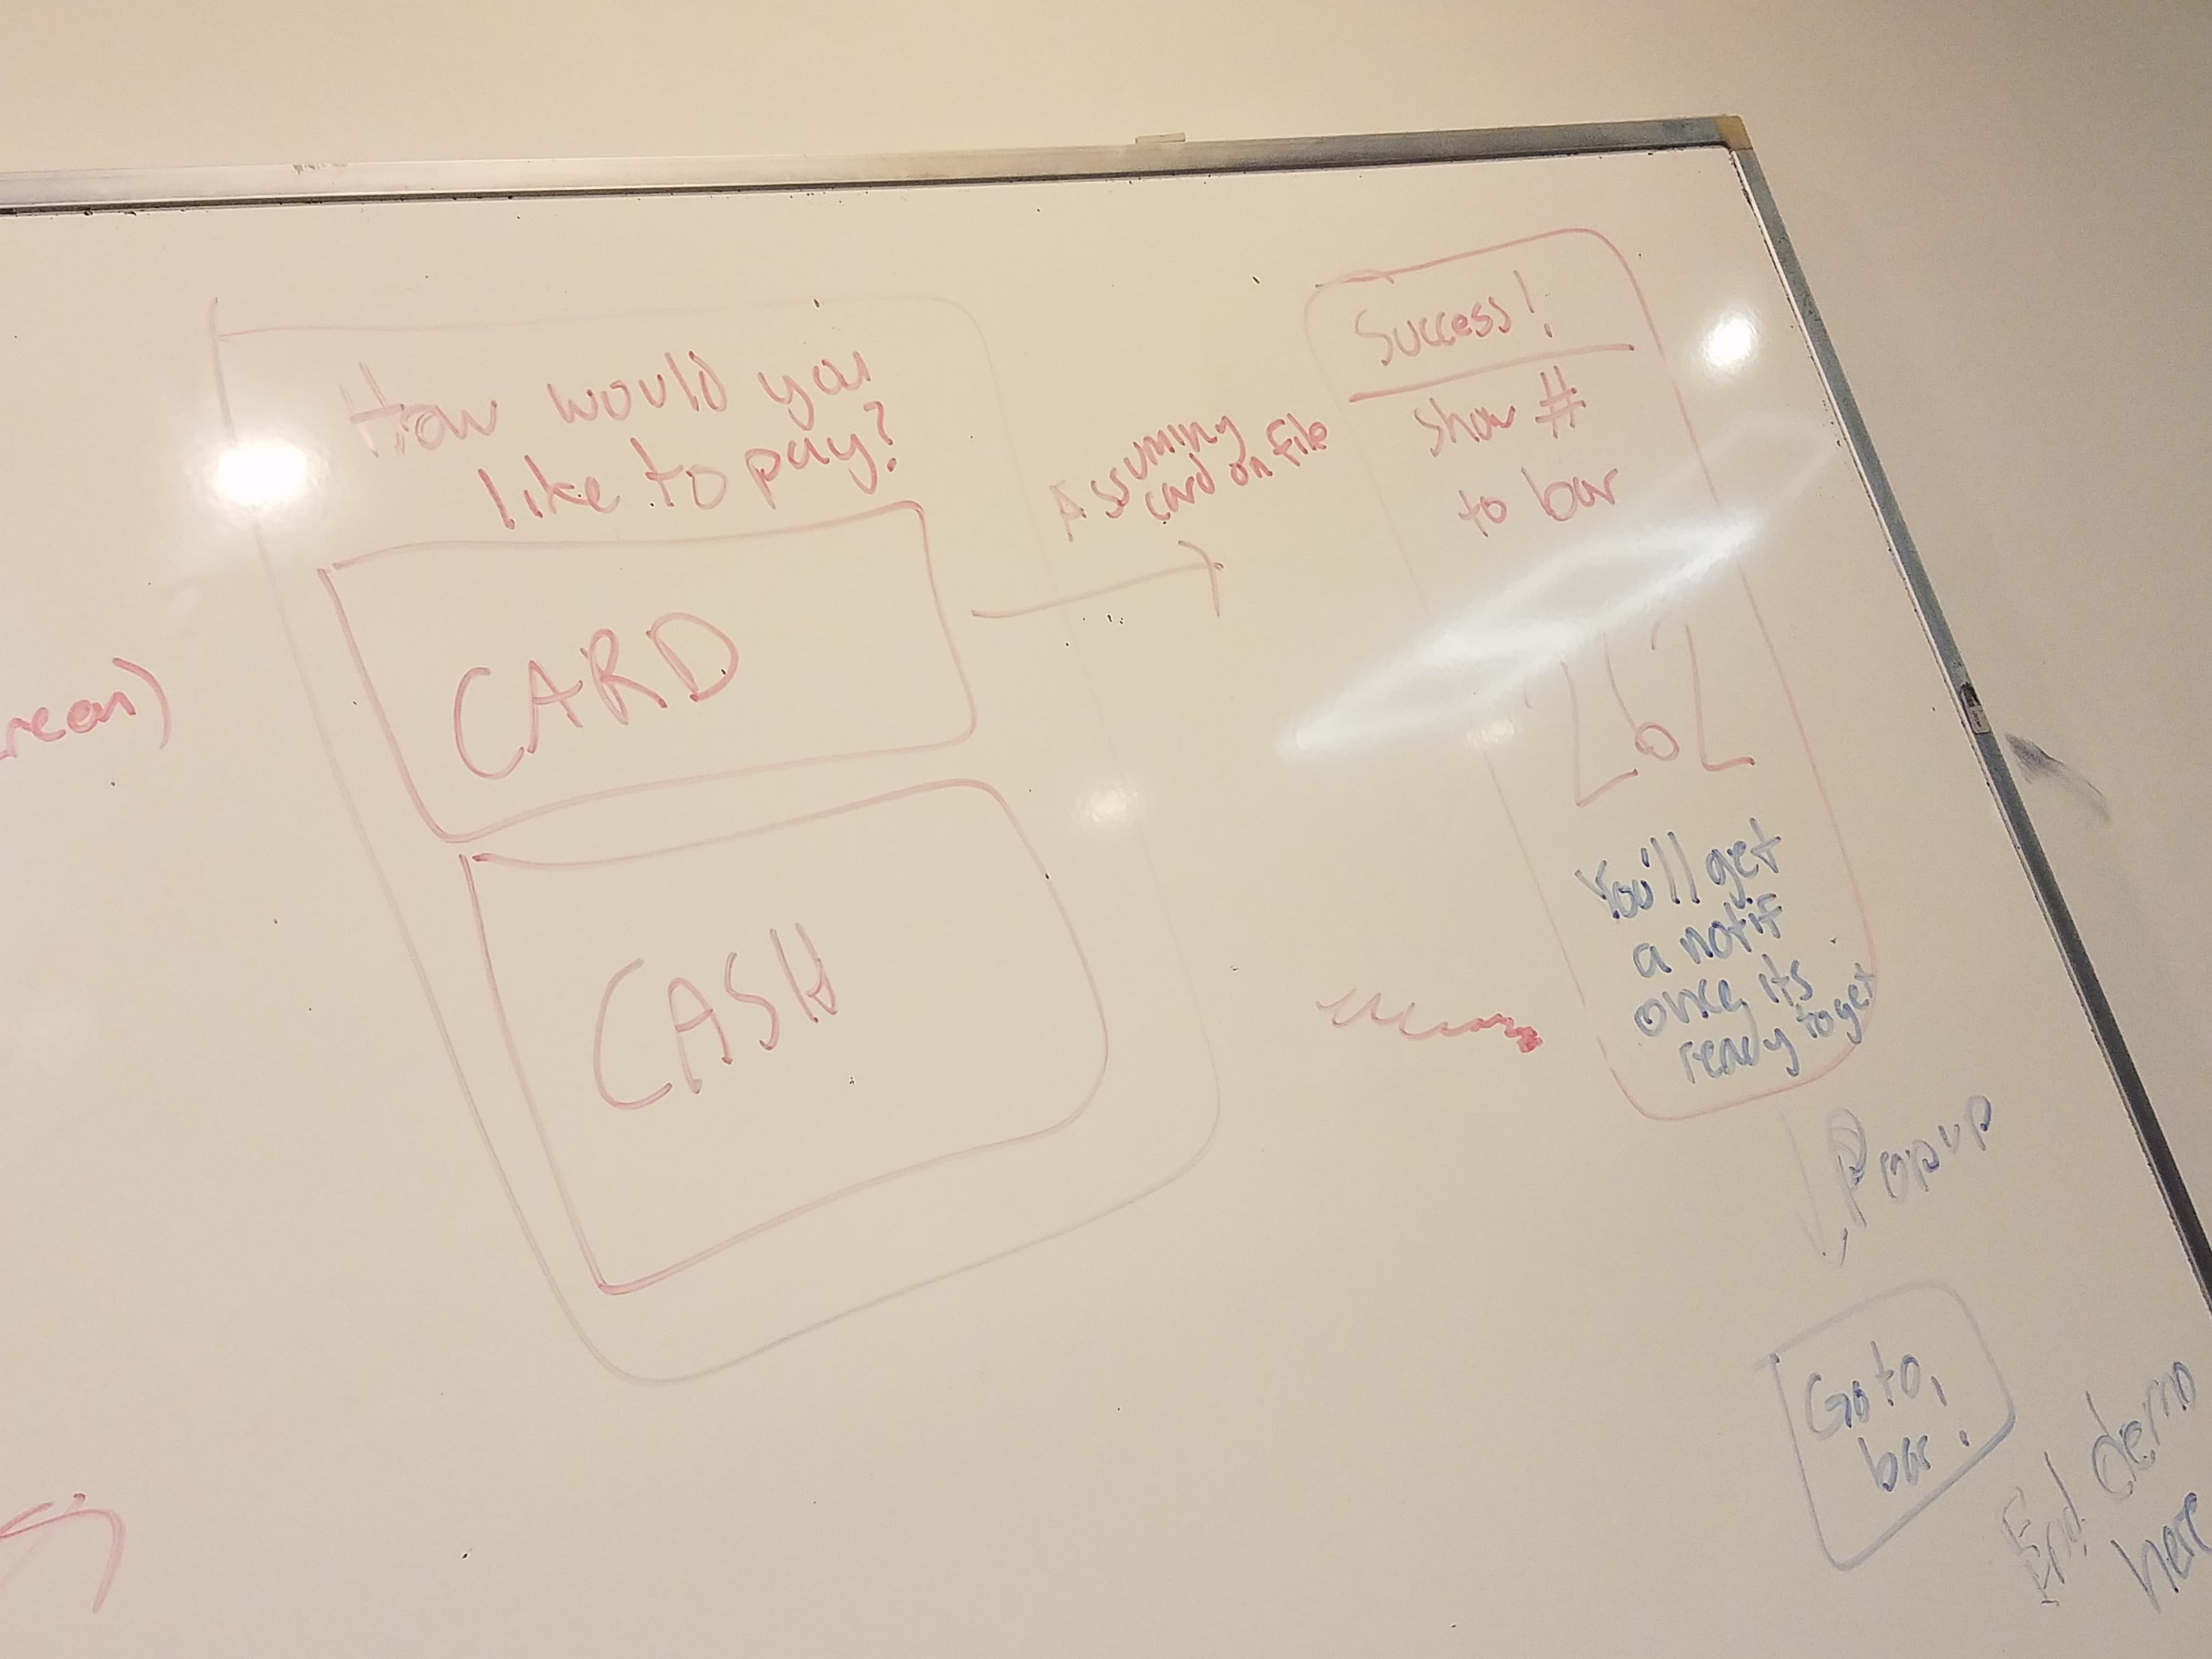 How would you
like to pay?
CARD
CASH
Assuming
card on file
Success!
Show #
to bar
262
You'll get
a notif
once its
ready to get
Popup
Go to
bar!
End demo
here